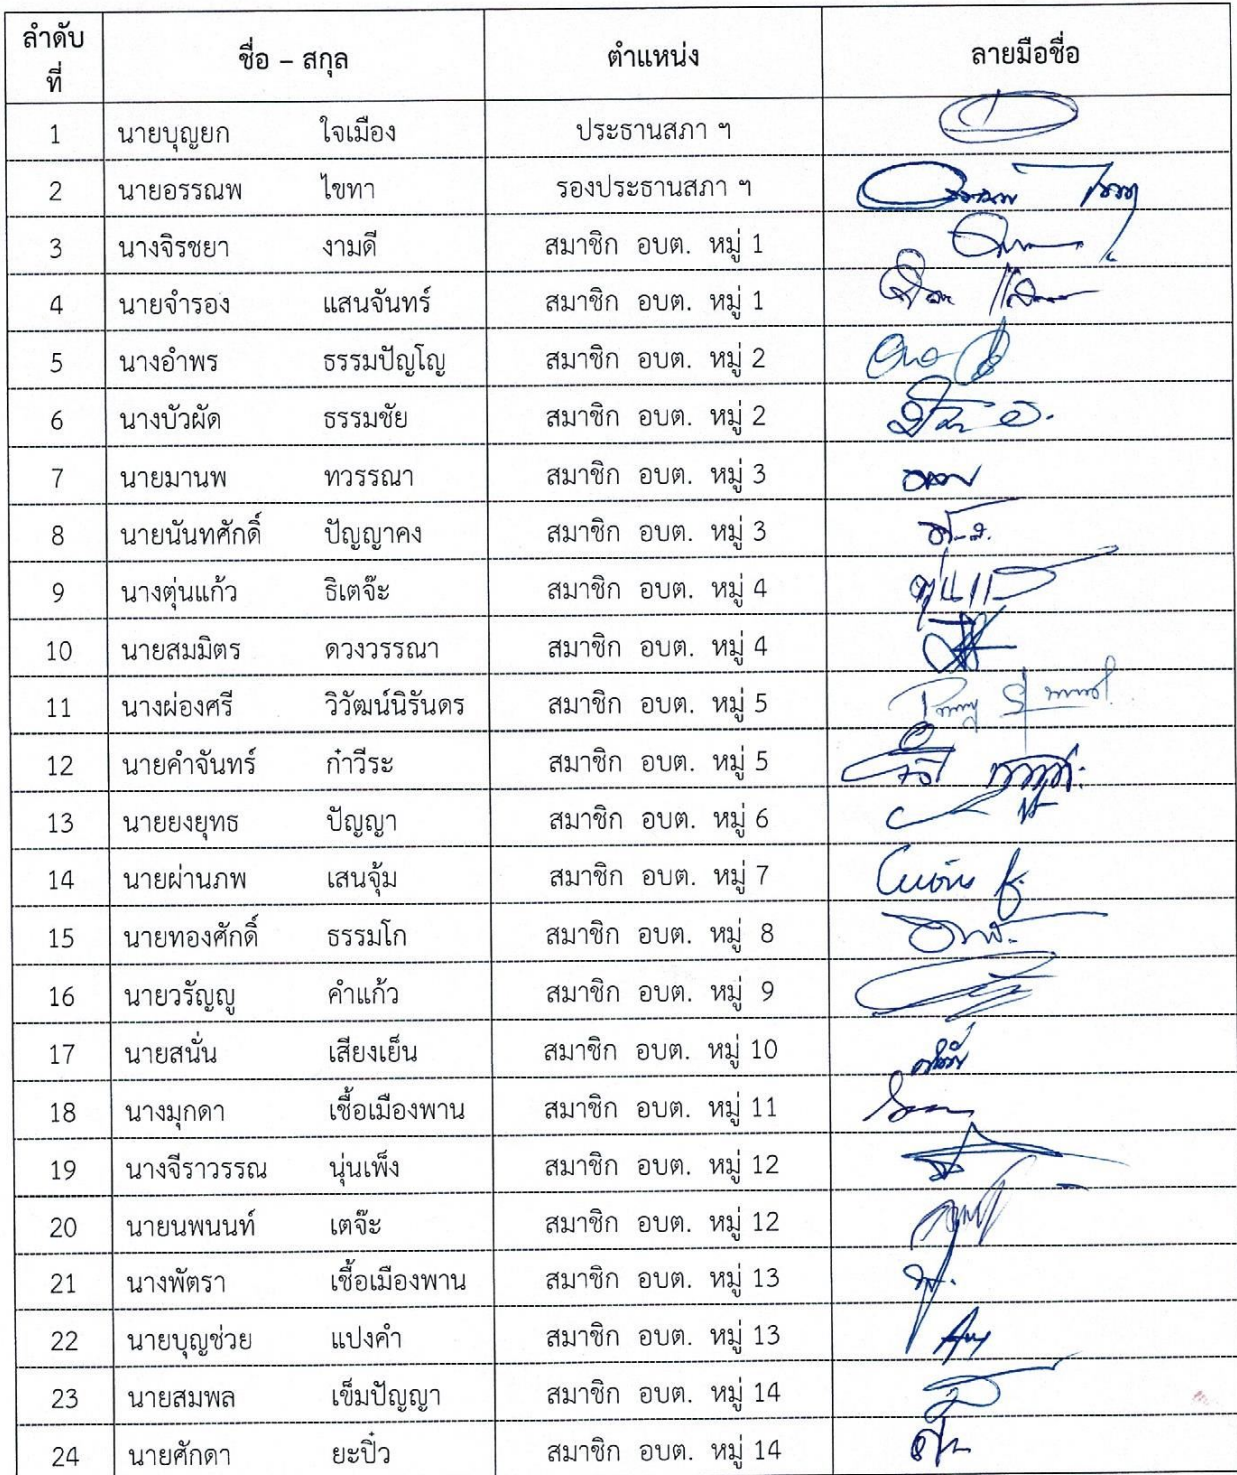 ลำดับที่ ชื่อ – สกุล ตำแหน่ง ลายมือชื่อ
1 นายบุญยก ใจเมือง ประธานสภา ฯ
2 นายอรรณพ ไขทา รองประธานสภา ฯ
3 นางจิรชยา งามดี สมาชิก อบต. หมู่ 1
4 นายจำรอง แสนจันทร์ สมาชิก อบต. หมู่ 1
5 นางอำพร ธรรมปัญโญ สมาชิก อบต. หมู่ 2
6 นางบัวผัด ธรรมชัย สมาชิก อบต. หมู่ 2
7 นายมานพ ทวรรณา สมาชิก อบต. หมู่ 3
8 นายนันทศักดิ์ ปัญญาคง สมาชิก อบต. หมู่ 3
9 นางตุ่นแก้ว ธิเตจ๊ะ สมาชิก อบต. หมู่ 4
10 นายสมมิตร ดวงวรรณา สมาชิก อบต. หมู่ 4
11 นางผ่องศรี วิวัฒน์นิรันดร สมาชิก อบต. หมู่ 5
12 นายคำจันทร์ ก๋าวีระ สมาชิก อบต. หมู่ 5
13 นายยงยุทธ ปัญญา สมาชิก อบต. หมู่ 6
14 นายผ่านภพ เสนจุ้ม สมาชิก อบต. หมู่ 7
15 นายทองศักดิ์ ธรรมโก สมาชิก อบต. หมู่ 8
16 นายวรัญญู คำแก้ว สมาชิก อบต. หมู่ 9
17 นายสนั่น เสียงเย็น สมาชิก อบต. หมู่ 10
18 นางมุกดา เชื้อเมืองพาน สมาชิก อบต. หมู่ 11
19 นางจีราวรรณ นุ่นเพ็ง สมาชิก อบต. หมู่ 12
20 นายนพนนท์ เตจ๊ะ สมาชิก อบต. หมู่ 12
21 นางพัตรา เชื้อเมืองพาน สมาชิก อบต. หมู่ 13
22 นายบุญช่วย แปงคำ สมาชิก อบต. หมู่ 13
23 นายสมพล เข็มปัญญา สมาชิก อบต. หมู่ 14
24 นายศักดา ยะปิ๋ว สมาชิก อบต. หมู่ 14